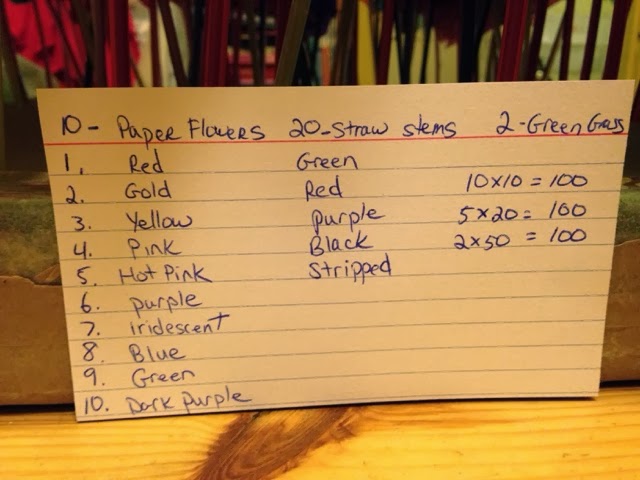 10 - Paper Flowers 20-Straw stems 2-Green Grass
1. Red Green
2. Gold Red 10x10 = 100
3. Yellow purple 5x20 = 100
4. Pink Black 2x50 = 100
5. Hot Pink Stripped
6. purple
7. iridescent
8. Blue
9. Green
10. Dark purple